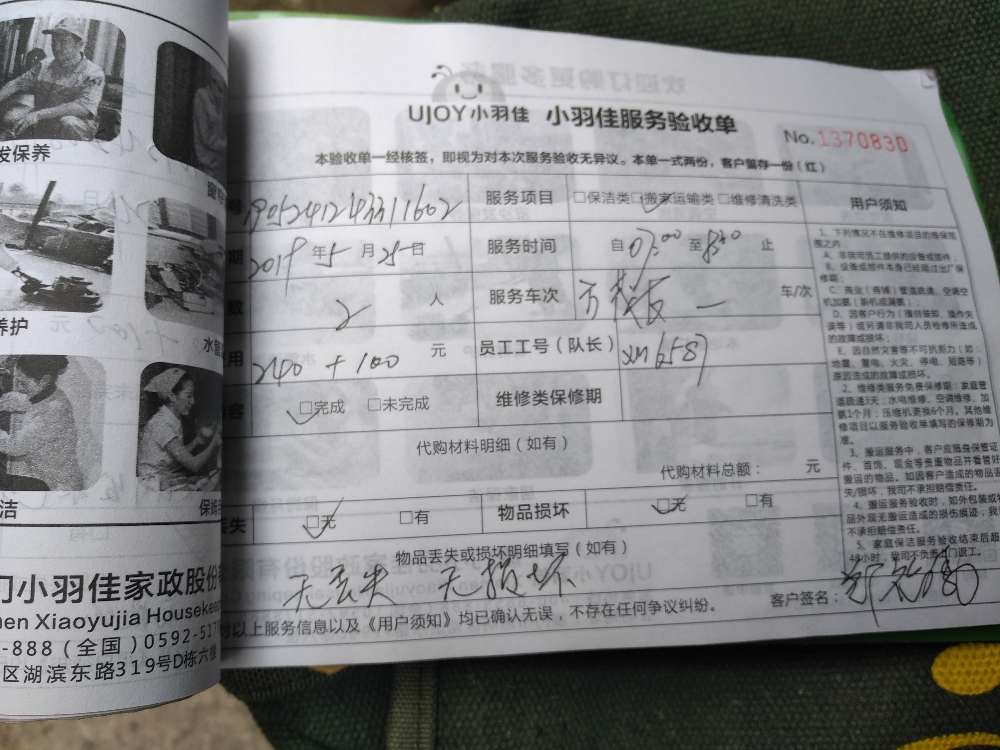 UJOY小羽佳 小羽佳服务验收单
No.1370830
本验收单一经核签，即视为对本次服务验收无异议。本单一式两份，客户留存一份（红）
服务项目 □保洁类□搬家运输类□维修清洗类 用户须知
期 2019年5月25日 服务时间 自07:00至8:30止
数 2 人 服务车次 车/次
用 240+100 元 员工工号（队长） xm6587
容 □完成 □未完成 维修类保修期
代购材料明细（如有）
代购材料总额： 元
丢失 □无 □有 物品损坏 □无 □有
物品丢失或损坏明细填写（如有）
无丢失 无损坏
对以上服务信息以及《用户须知》均已确认无误，不存在任何争议纠纷。 客户签名：
1、下列情况不在维修项目的维保范围之内：
A、非我司员工提供的设备或部件；
B、设备或部件本身已经超过出厂保修期；
C、商业（商铺）管道疏通、空调空机加氨（新机或漏氨）；
E、因自然灾害等不可抗断力（如：地震、雷电、火灾、停电、短路等）原因造成的故障或损坏。
2、维修类服务免费保修期：家庭管道疏通3天；水电维修、空调维修、加氨1个月；压缩机更换6个月。其他维修项目以服务验收单填写的保修期为准。
3、搬运服务中，客户应随身保管证件、首饰、现金等贵重物品并看管好搬运的物品。如因客户造成的物品丢失/损坏，我司不承担赔偿责任。
4、搬运服务验收时，如外包装或
品外观无搬运造成的损伤痕迹，我
不承担赔偿责任。
5、家庭保洁服务验收结束后超
48小时，我司不负责上门返工。
发保养
养护
水管
洁
保姆
门小羽佳家政股份
men Xiaoyujia Housekee
-888（全国）0592-517
区湖滨东路319号D栋六楼